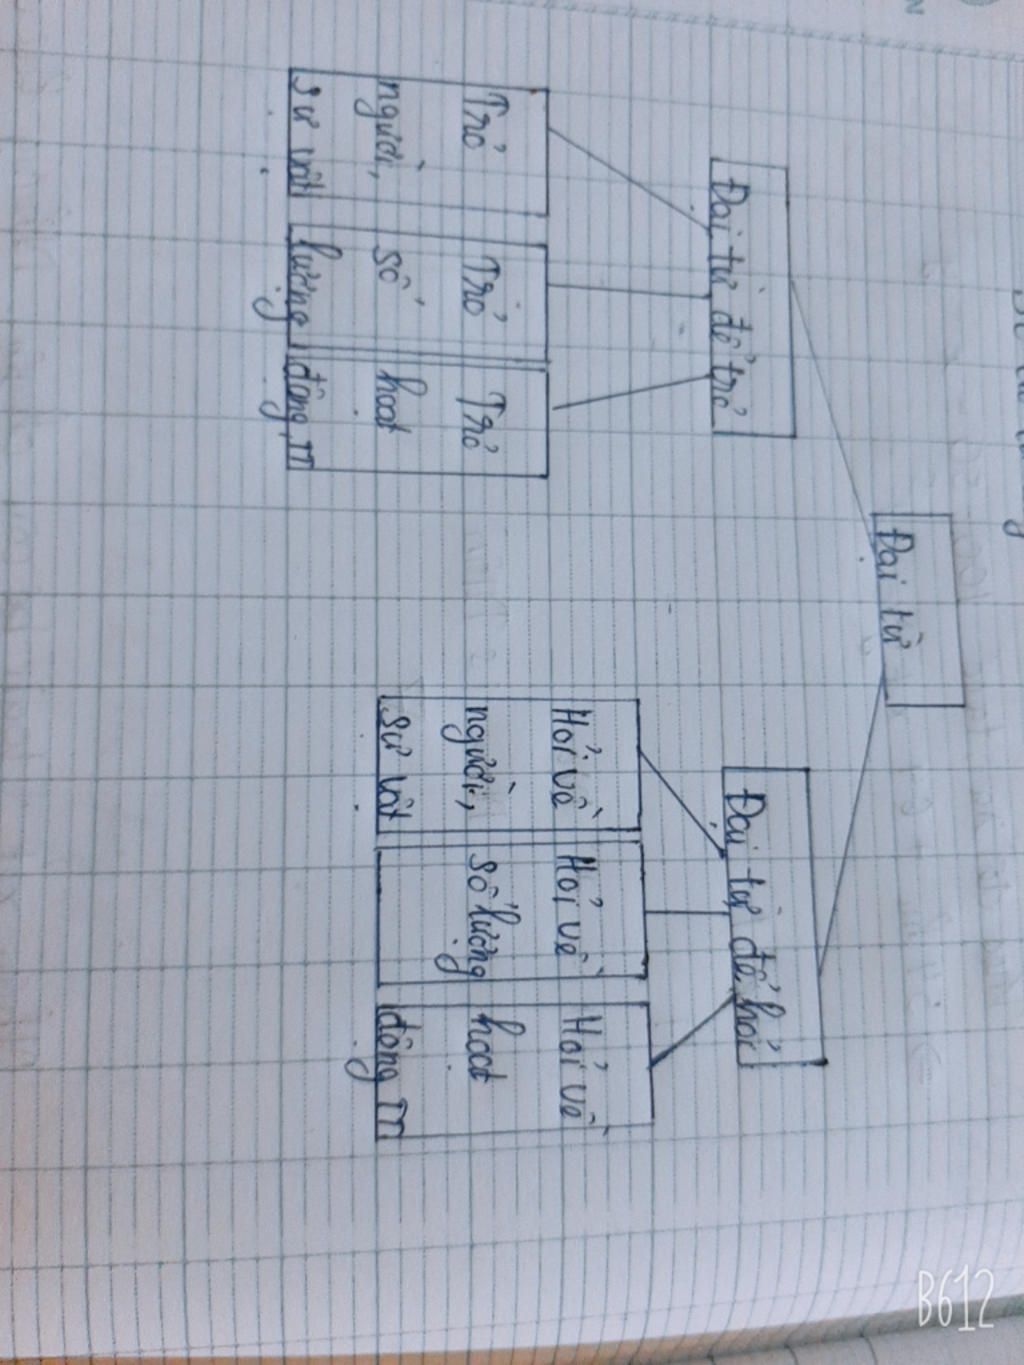 Đại từ
Đại từ để trỏ
Đại từ để hỏi
Trỏ
người,
sự vật
Trỏ
số
lượng
Trỏ
hoạt
động, m
Hỏi về
người,
sự vật
Hỏi về
số lượng
Hỏi về
hoạt
động m
B612